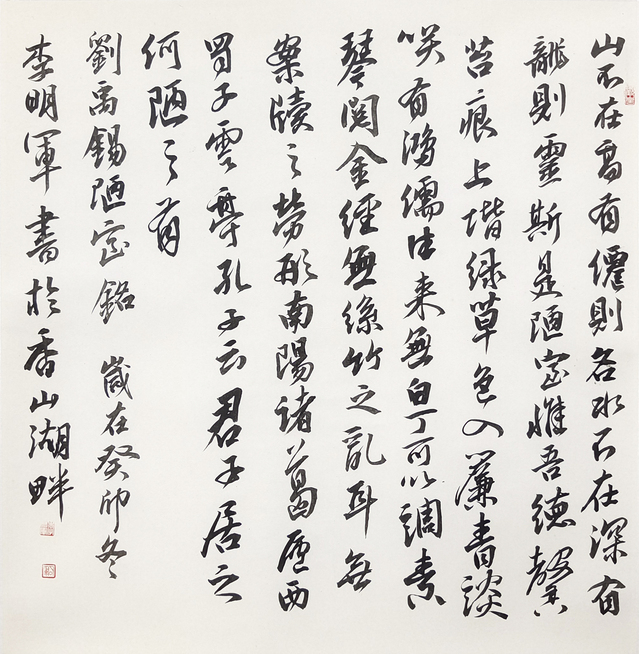 山不在高有僊則名水不在深有
龍則靈斯是陋室惟吾德馨
苔痕上堦緑草色入簾青談
咲有鴻儒往来無白丁可以調素
琴閲金經無絲竹之亂耳無
案牘之勞形南陽諸葛廬西
蜀子雲亭孔子云君子居之
何陋之有
劉禹錫陋室銘 歲在癸卯冬
李明軍書於香山湖畔